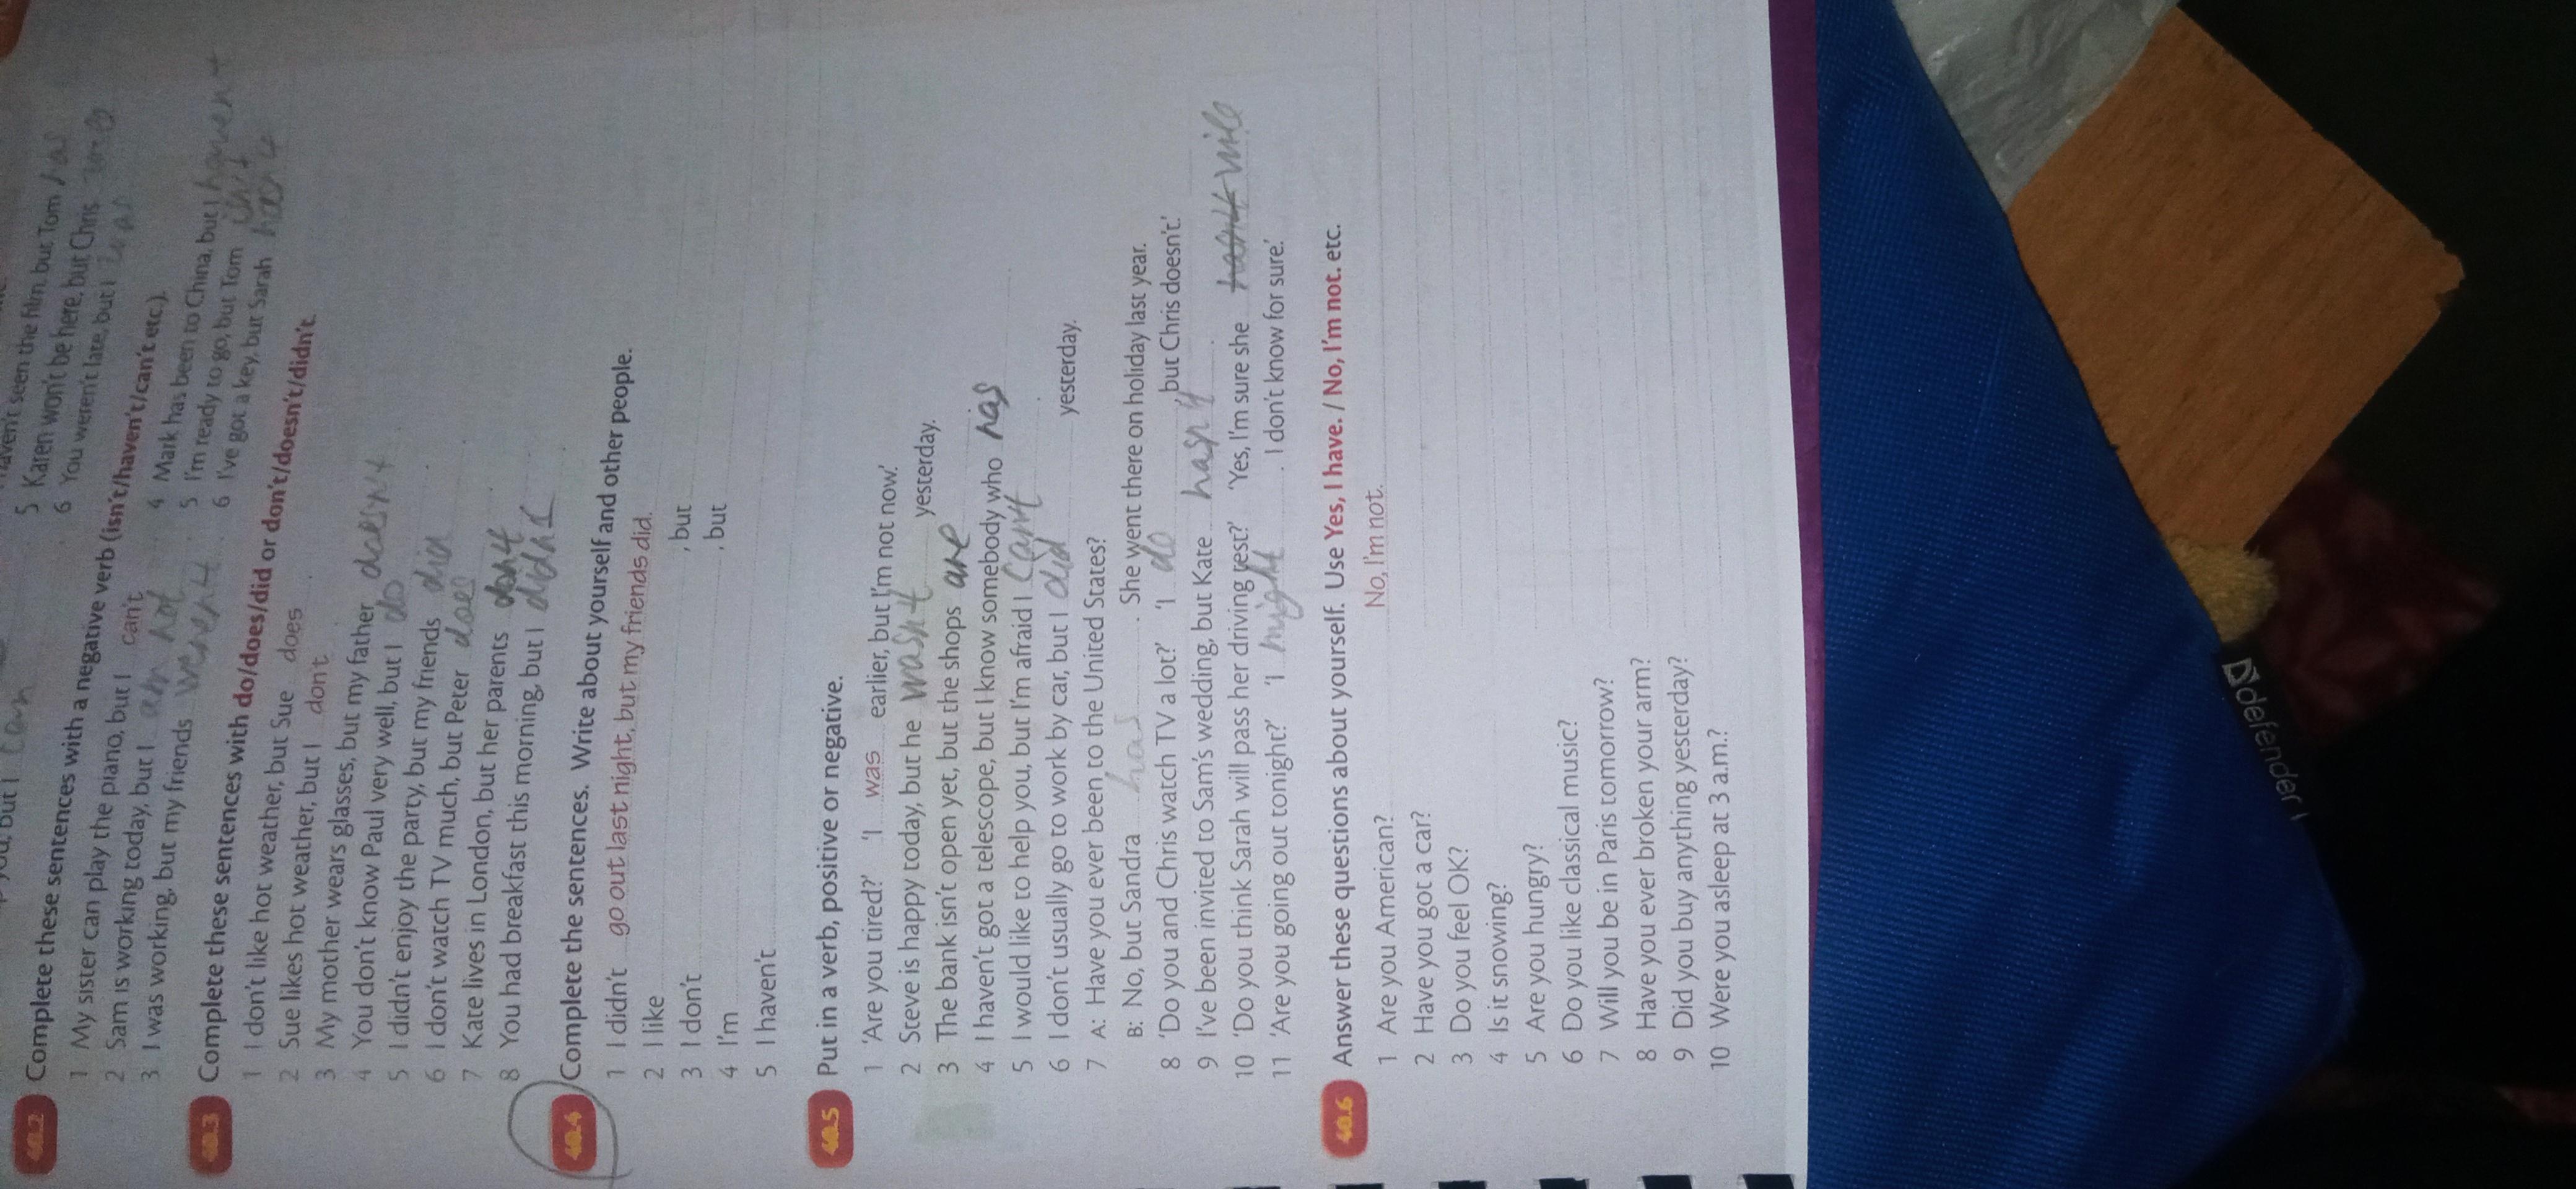 you, but I can
haven't seen the film, but Tom has
5 Karen won't be here, but Chris will
6 You weren't late, but I was
40.2 Complete these sentences with a negative verb (isn't/haven't/can't etc.).
1 My sister can play the piano, but I can't
2 Sam is working today, but I am not
3 I was working, but my friends weren't
4 Mark has been to China, but I haven't
5 I'm ready to go, but Tom isn't
6 I've got a key, but Sarah
40.3 Complete these sentences with do/does/did or don't/doesn't/didn't.
1 I don't like hot weather, but Sue does
2 Sue likes hot weather, but I don't
3 My mother wears glasses, but my father doesn't
4 You don't know Paul very well, but I do
5 I didn't enjoy the party, but my friends did
6 I don't watch TV much, but Peter does
7 Kate lives in London, but her parents don't
8 You had breakfast this morning, but I didn't
40.4 Complete the sentences. Write about yourself and other people.
1 I didn't go out last night, but my friends did.
2 I like
3 I don't , but
4 I'm , but
5 I haven't
40.5 Put in a verb, positive or negative.
1 'Are you tired?' 'I was earlier, but I'm not now.'
2 Steve is happy today, but he wasn't yesterday.
3 The bank isn't open yet, but the shops are
4 I haven't got a telescope, but I know somebody who has
5 I would like to help you, but I'm afraid I can't
6 I don't usually go to work by car, but I did yesterday.
7 A: Have you ever been to the United States?
B: No, but Sandra has . She went there on holiday last year.
8 'Do you and Chris watch TV a lot?' 'I do , but Chris doesn't.'
9 I've been invited to Sam's wedding, but Kate hasn't .
10 'Do you think Sarah will pass her driving test?' 'Yes, I'm sure she will
11 'Are you going out tonight?' 'I might . I don't know for sure.'
40.6 Answer these questions about yourself. Use Yes, I have. / No, I'm not. etc.
1 Are you American? No, I'm not.
2 Have you got a car?
3 Do you feel OK?
4 Is it snowing?
5 Are you hungry?
6 Do you like classical music?
7 Will you be in Paris tomorrow?
8 Have you ever broken your arm?
9 Did you buy anything yesterday?
10 Were you asleep at 3 a.m.?
defender